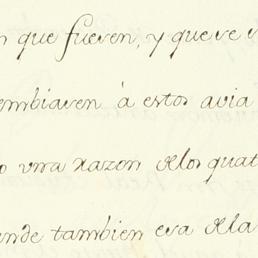 que fueren, y que se
embiaren à estos avia
una razon delos quat
ende tambien era dela